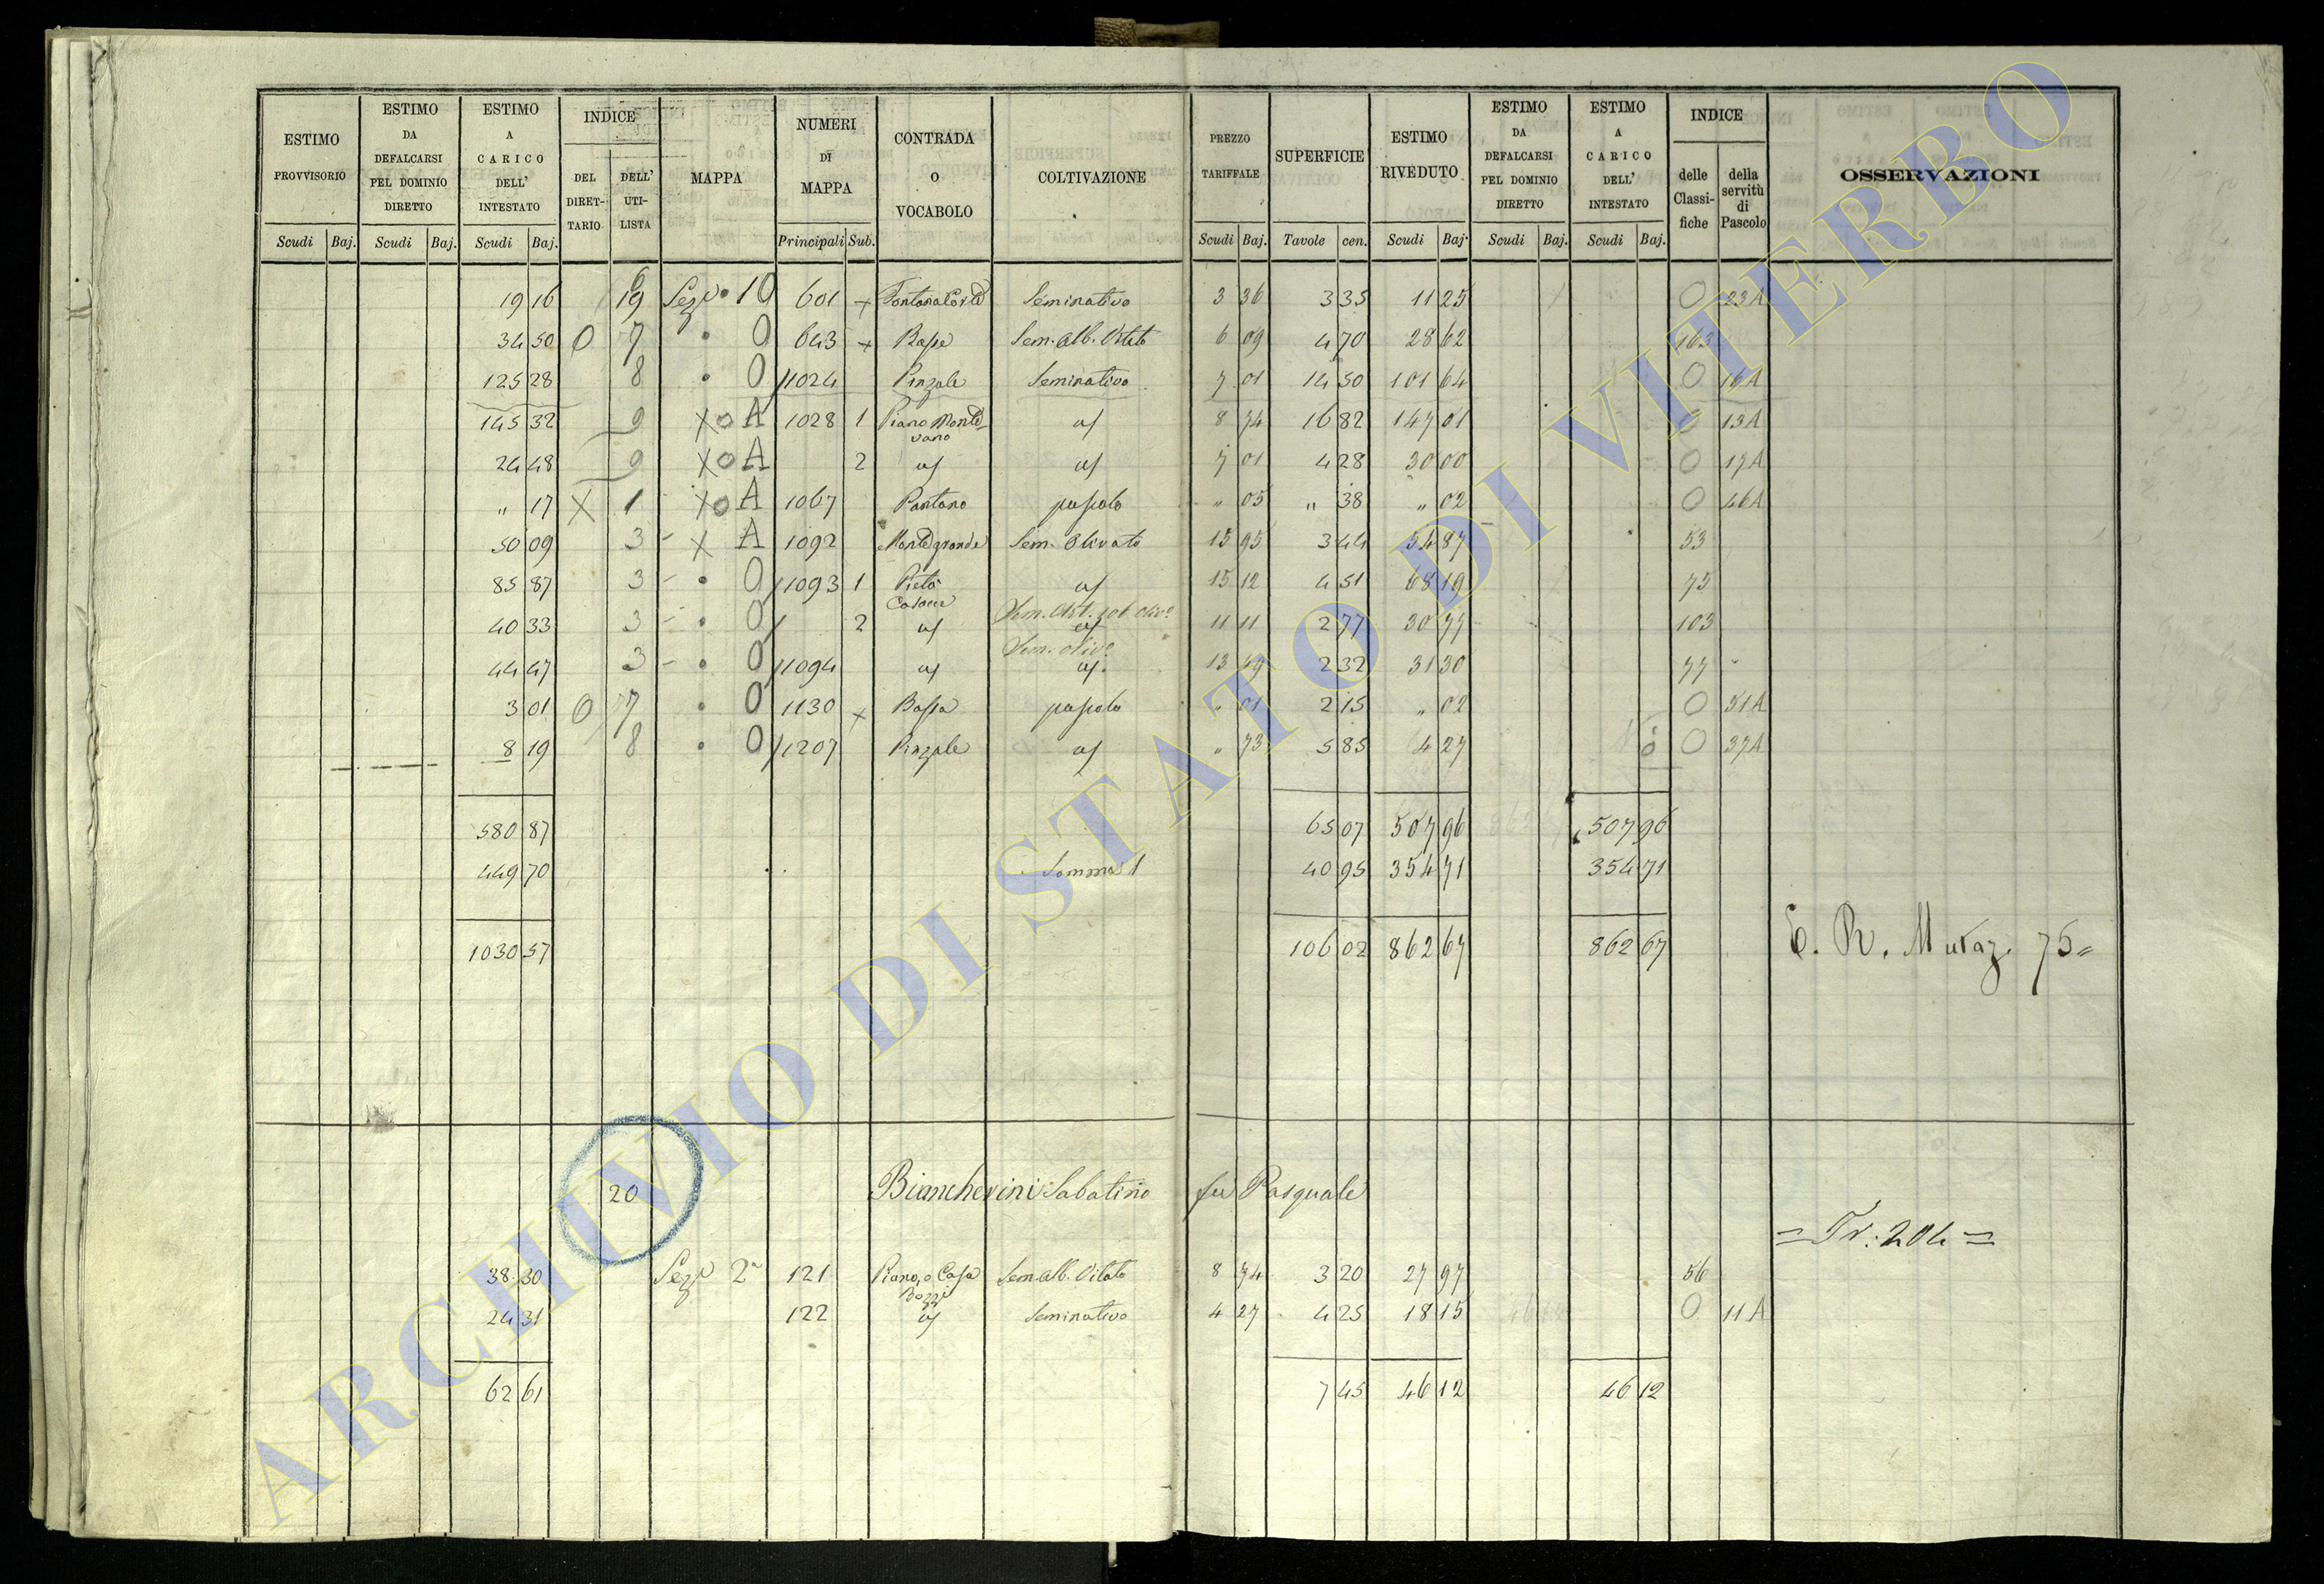 ESTIMO PROVVISORIO Scudi Baj. | ESTIMO DA DEFALCARSI PEL DOMINIO DIRETTO Scudi Baj. | ESTIMO A CARICO DELL' INTESTATO Scudi Baj. | INDICE DEL DIRETTARIO DELL' UTILISTA | MAPPA | NUMERI DI MAPPA Principali Sub. | CONTRADA O VOCABOLO | COLTIVAZIONE | PREZZO TARIFFALE Scudi Baj. | SUPERFICIE Tavole cen. | ESTIMO RIVEDUTO Scudi Baj. | ESTIMO DA DEFALCARSI PEL DOMINIO DIRETTO Scudi Baj. | ESTIMO A CARICO DELL' INTESTATO Scudi Baj. | INDICE delle Classifiche della servitù di Pascolo | OSSERVAZIONI
19 16 19 Sez.e 1 O 601 + Seminativo 3 36 3 35 11 25 O 23A
34 50 O 7 " O 643 + Bassa Sem. Alb. Vitato 6 09 4 70 28 62 163
125 28 8 " O 1024 Pinzale Seminativo 7 01 14 50 101 64 O 16A
145 32 9 X o A 1028 1 Piano Montevano a/ 8 74 16 82 147 01 O 13A
24 48 9 X o A 2 a/ a/ 7 01 4 28 30 00 O 17A
" 17 X 1 X o A 1067 Pantano pascolo " 05 " 38 " 02 O 46A
50 09 3 - X A 1092 Monte grande Sem. Olivato 15 95 3 44 54 87 53
85 87 3 - " O 1093 1 Pietà a/ 15 12 4 51 68 19 75
40 33 3 - " O 2 a/ a/ 11 11 2 77 30 77 103
44 47 3 - " O 1094 a/ Sem. olivo a/ 13 49 2 32 31 30 77
3 01 O 7 " O 1130 + Bassa pascolo " 01 2 15 " 02 O 51A
8 19 8 " O 1207 Pinzale a/ " 73 5 85 4 27 O 37A
580 87 65 07 507 96 507 96
449 70 Somma 1 40 95 354 71 354 71
1030 57 106 02 862 67 862 67 E. R. Mutaz. 75
20 Biancherini Sabatino fu Pasquale
= Tr. 204 =
38 30 Sez.e 2a 121 Piano, o Casa Bozzi Sem. alb. Vitato 8 74 3 20 27 97 56
24 31 122 a/ Seminativo 4 27 4 25 18 15 O 11A
62 61 7 45 46 12 46 12
ARCHIVIO DI STATO DI VITERBO